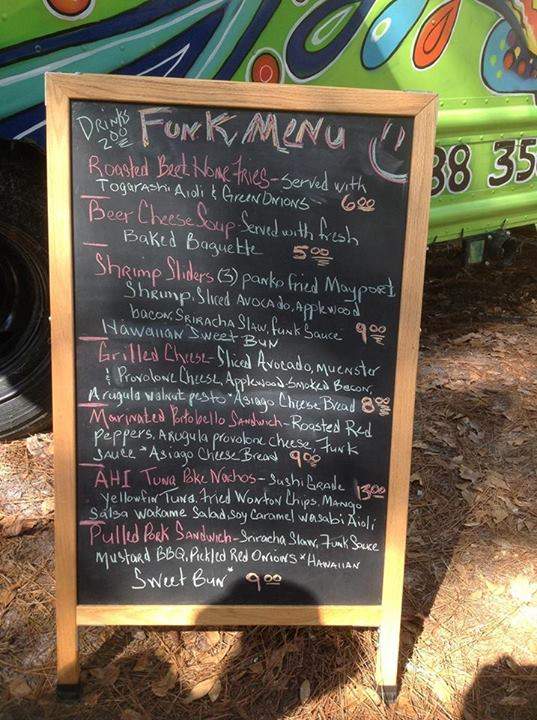 Drinks
2.00
Funk Menu
Roasted Beet Nome Fries - served with
Togarashi Aioli & Green Onions 6.00
Beer Cheese Soup - Served with fresh
Baked Baguette 5.00
Shrimp Sliders (3) panko fried Mayport
Shrimp, Sliced Avocado, Applewood
bacon, Sriracha Slaw, funk Sauce
Hawaiian Sweet Bun 9.00
Grilled Cheese - Sliced Avocado, muenster
& Provolone Cheese, Applewood Smoked Bacon,
Arugula walnut pesto * Asiago Cheese Bread 8.00
Marinated Portobello Sandwich - Roasted Red
Peppers, Arugula provolone cheese, Funk
Sauce * Asiago Cheese Bread 9.00
AHI Tuna Poke Nachos - Sushi Grade 13.00
Yellowfin Tuna, fried Wonton Chips, Mango
Salsa Wakame Salad, Soy Caramel Wasabi Aioli
Pulled Pork Sandwich - Sriracha Slaw, Funk Sauce
Mustard BBQ, Pickled Red Onions * Hawaiian
Sweet Bun * 9.00
38 35